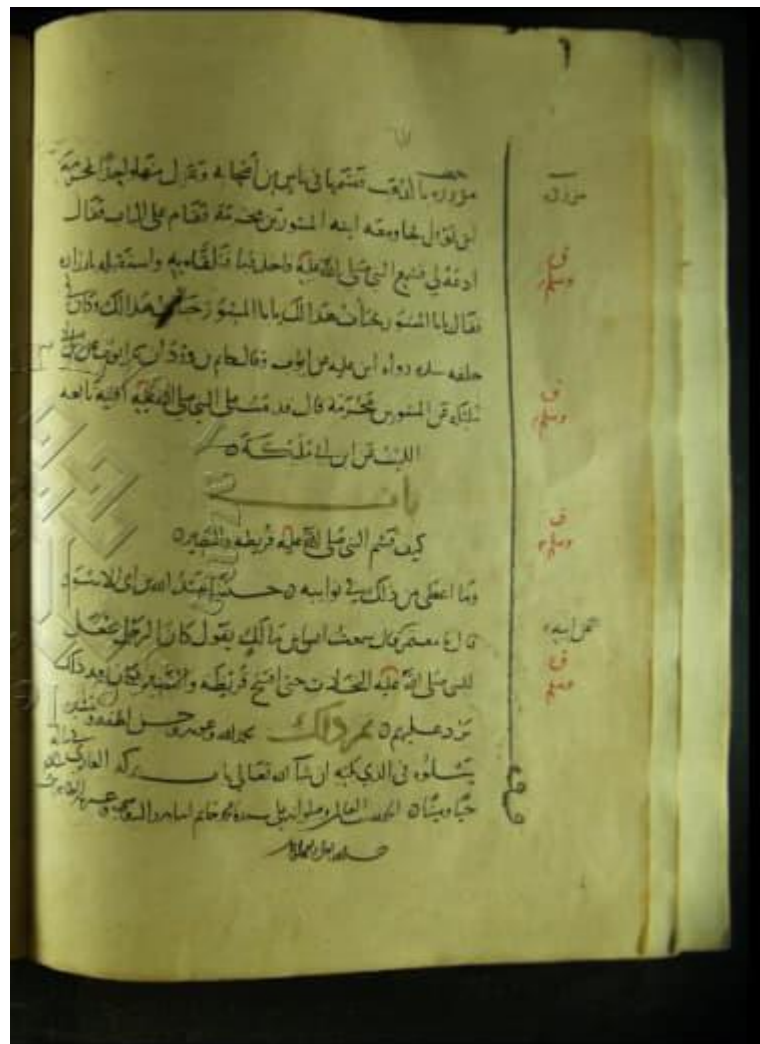 مزررة بالذهب فقسمها في ناس من أصحابه وعزل منها واحدا لمخرمة
ابن نوفل فجا ومعه ابنه المسور بن مخرمة فقام على الباب فقال
ادعه لي فسمع النبي صلى الله عليه واحد قبا فتلقاه به واستقبله بازراره
فقال يابا المسور خبات هذا لك يابا المسور خبات هذا لك وكان في
خلقه رواه ابن علية عن ايوب وقال حاتم بن وردان ايوب عن ابن ابي
مليكه عن المسور بن مخرمة قال قدمت على النبي صلى الله عليه اقبية تابعه
الليث عن ابن ابي مليكة
باب
كيف قسم النبي صلى الله عليه قريظة والنضير
وما اعطى من ذلك في نوايبه حدثنا عبد الله بن ابي الاسود
قال معتمر قال سمعت انس بن مالك يقول كان الرجل يجعل
للنبي صلى الله عليه النخلات حتى افتتح قريظة والنضير فكان بعد ذلك
يرد عليهم تم ذلك بحمد الله وعونه وحسن
يتلوه في الذي يليه ان شا الله تعالى باب بركة الغازي في ماله
حيا وميتا
مزررة
ق
وسلم
ق
وسلم
ق
وسلم
ق
وسلم